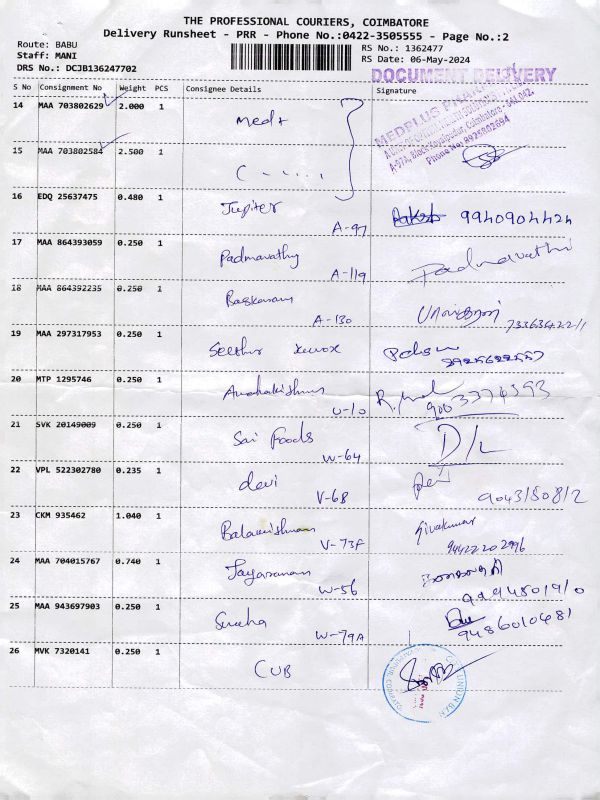 THE PROFESSIONAL COURIERS, COIMBATORE
Delivery Runsheet - PRR - Phone No.:0422-3505555 - Page No.:2
Route: BABU
Staff: MANI
DRS No.: DCJB136247702
RS No.: 1362477
RS Date: 06-May-2024
DOCUMENT DELIVERY
S No Consignment No Weight PCS Consignee Details Signature
14 MAA 703802629 2.000 1 Med+
MEDPLUS
15 MAA 703802584 2.500 1
16 EDQ 25637475 0.480 1 Jupiter A-97 9940904424
17 MAA 864393059 0.250 1 Padmavathy A-119 Padmavathi
18 MAA 864392235 0.250 1 Baskaran A-130
19 MAA 297317953 0.250 1 xerox
20 MTP 1295746 0.250 1 U-10 9003374393
21 SVK 20149009 0.250 1 Sai Foods W-64 D/L
22 VPL 522302780 0.235 1 devi V-68 Devi
23 CKM 935462 1.040 1 Balakrishnan V-73F Sivakumar
94422202996
24 MAA 704015767 0.740 1 Jayaraman W-56
9994801910
25 MAA 943697903 0.250 1 W-79A
9486010681
26 MVK 7320141 0.250 1 CUB